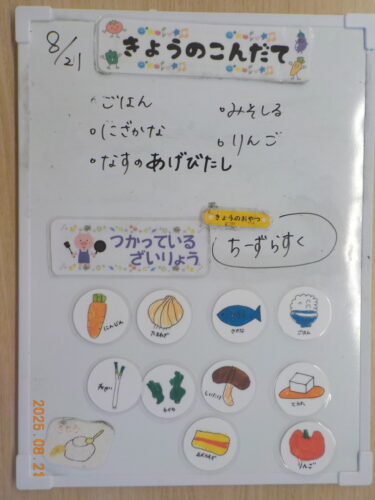 8/21
きょうのこんだて
・ごはん
・みそしる
・にざかな
・りんご
・なすのあげびたし
きょうのおやつ
ちーずらすく
つかっている
ざいりょう
にんじん
たまねぎ
さかな
ごはん
ねぎ
わかめ
しいたけ
とうふ
あぶらあげ
りんご
2025.08.21